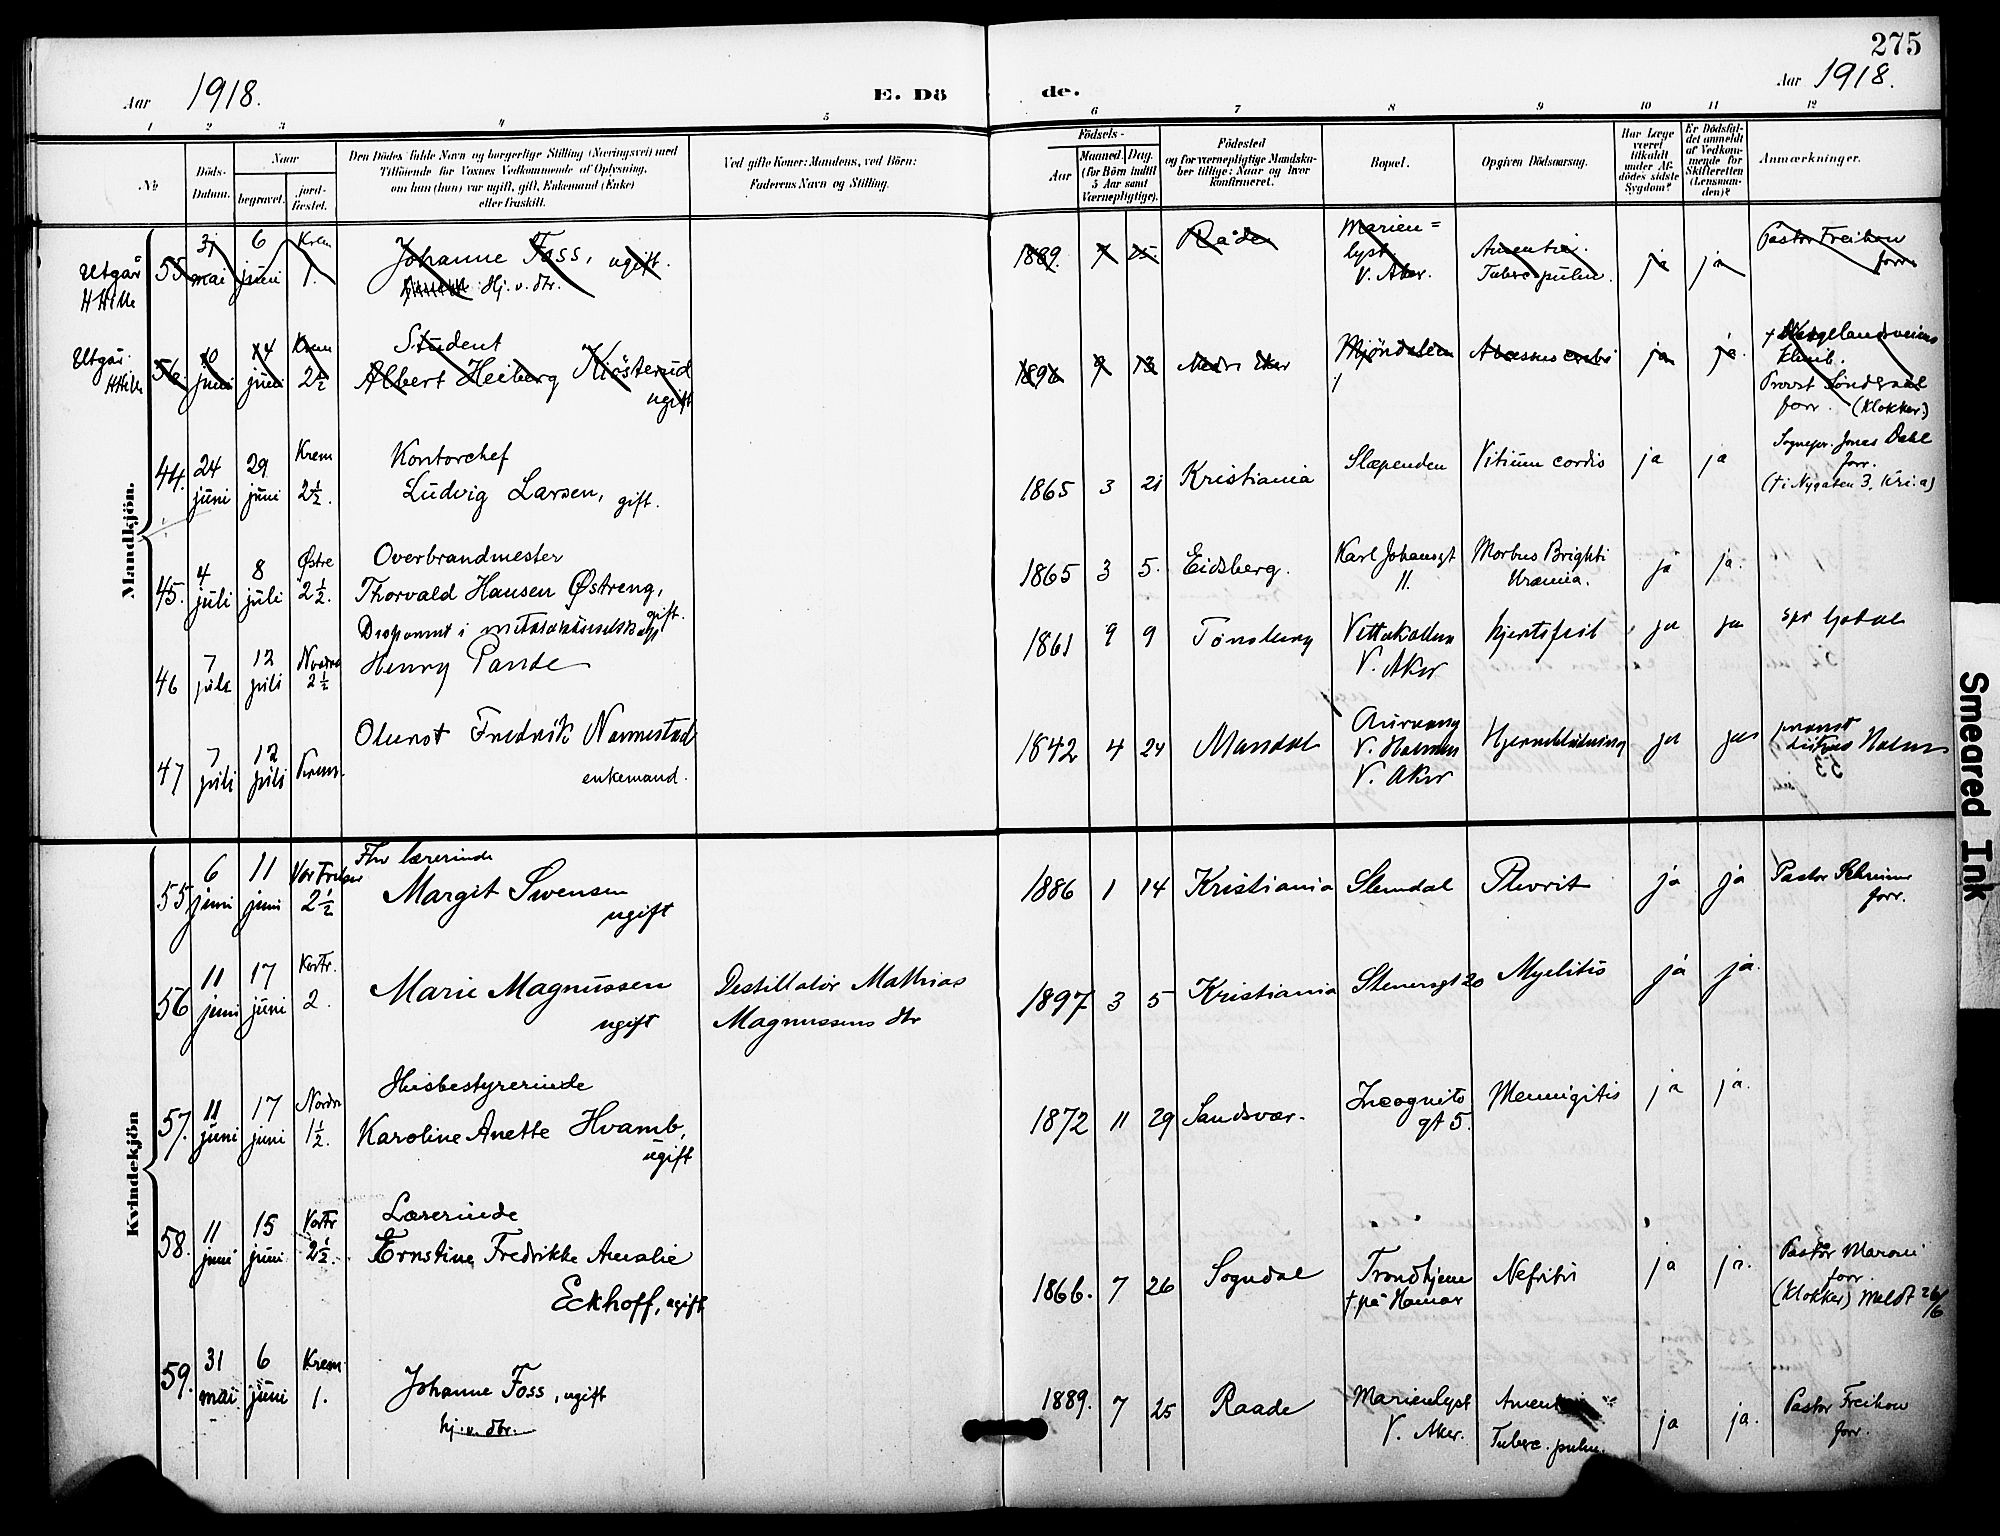 275
Aar 1918.
E. Dö de.
Aar 1918.
1 2 3 4 5 6 7 8 9 10 11 12
No
Döds-
Datum.
Naar
begravet.
jord-
fæstet.
Den Dödes fulde Navn og borgerlige Stilling (Næringsvei) med
Tilföiende for Voxnes Vedkommende af Oplysning,
om han (hun) var ugift, gift, Enkemand (Enke)
eller fraskilt.
Ved gifte Koner: Mandens, ved Börn:
Faderens Navn og Stilling.
Födsels-
Aar
Maaned. Dag.
(for Börn indtil
5 Aar samt
Værnepligtige).
Födested
og for værnepligtige Mandska-
ber tillige: Naar og hvor
konfirmeret.
Bopæl.
Opgiven Dödsaarsag.
Har Læge
været
tilkaldt
under Af-
dödes sidste
Sygdom?
Er Dödsfal-
det anmeldt
af Vedkom-
mende for
Skifteretten
(Lensman-
den)?
Anmærkninger.
Mandkjön.
Utgår
55. 31 mai 6 juni Krem 1.
Johanne Foss, ugift.
Hj. v. dtr.
1889. 7 25. Råde
Marien=
lyst
V. Aker.
Amentia.
Tuberc. pulm.
ja ja
Pastor Freihow
forr.
Utgår.
56. 10 juni 14 juni Krem 2½
Student
Albert Heiberg Kiösterud
ugift
1896 9 13 Nedre Eker
Mjöndalen
Abscessus cerebri
ja ja.
Provst Söndenaa
forr. (Klokker.)
44. 24 juni 29 juni Krem 2½.
Kontorchef
Ludvig Larsen, gift.
1865 3 21 Kristiania
Slæpenden
Vitium cordis
ja ja
Sognepr. Jonas Dahl
forr.
(† i Nygaten 3, Kri.a)
45. 4 juli 8 juli Østre 2½.
Overbrandmester
Thorvald Hansen Østreng,
gift.
1865 3 5. Eidsberg.
Karl Johansgt
11.
Morbus Brighti
Uræmia.
ja ja.
46 7 juli 12 juli Nordre 2½
Disponent i
Henry Pande
1861 9 9 Tönsberg
Vettakollen
V. Aker
hjertefeil
ja ja
47 7 juli 12 juli Krem.
Olerot Fredrik Nannestad
enkemand.
1842 4 24 Mandal
V. Holmen
V. Aker
Hjerneblödning
ja ja
Kvindekjön
55. 6 juni 11 juni Vor Frelser 2½
Fhv lærerinde
Margit Swensen
ugift
1886 1 14 Kristiania
Slemdal
Plevrit
ja ja
Pastor Schreiner
forr.
56 11 juni 17 juni Vor Fr. 2.
Marie Magnussen
ugift
Destillatör Mathias
Magnussens dtr
1897 3 5 Kristiania
Stenersgt 20
Myelitis
ja ja.
57. 11 juni 17 juni Nordre 1½.
Husbestyrerinde
Karoline Anette Hvamb,
ugift
1872 11 29 Sandsvær.
Incognito
gt 5.
Mennigitis
ja ja.
58. 11 juni 15 juni Vor Fr 2½.
Lærerinde
Ernstine Fredrikke Amalie
Eckhoff, ugift
1866. 7 26 Sogndal
Trondhjem
† på Hamar
Nefritis
ja ja.
Pastor Maroni
forr.
(Klokker) Meldt 26/6
59. 31 mai 6 juni Krem. 1.
Johanne Foss, ugift
hj. v. dtr.
1889. 7 25 Raade
Marienlyst
V. Aker.
Tuberc. pulm.
ja ja.
Pastor Freihow
forr.
Smeared Ink